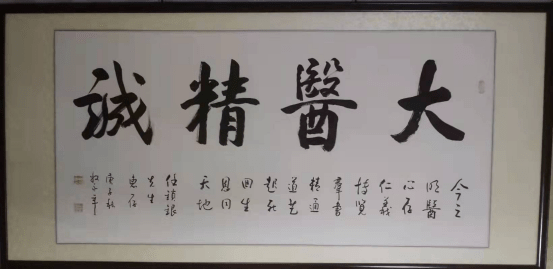 大醫精誠
今之
明醫
心存
仁義
博覽
羣書
精通
道藝
起死
回生
恩同
天地
先生
惠存
庚子秋